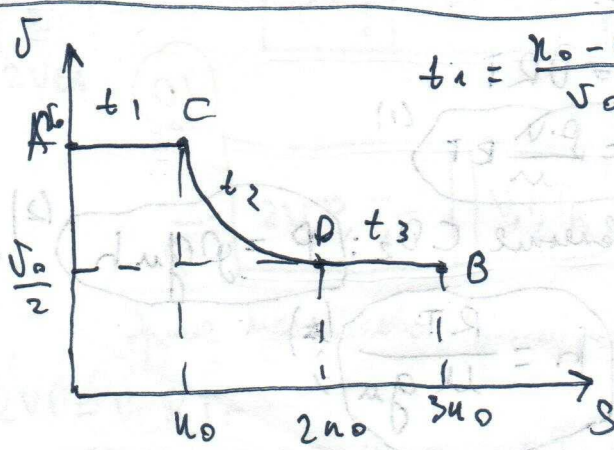 v
t₁ = x₀ -
v₀
A v₀ t₁ C
t₂
D t₃
v₀
2
B
x₀ 2x₀ 3x₀ S